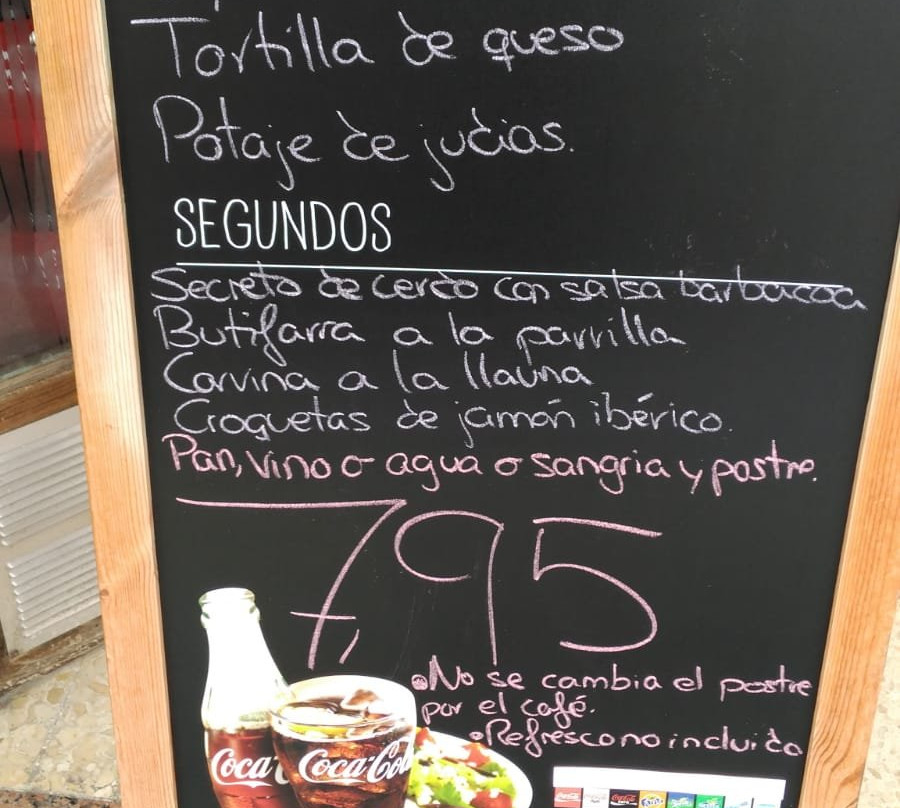 Tortilla de queso
Potaje de judias.
SEGUNDOS
Secreto de cerdo con salsa barbacoa
Butifarra a la parrilla
Corvina a la llauna
Croquetas de jamón ibérico.
Pan, vino o agua o sangria y postre.
7,95
•No se cambia el postre
por el café.
•Refresco no incluido
Coca-Cola
Coca-Cola